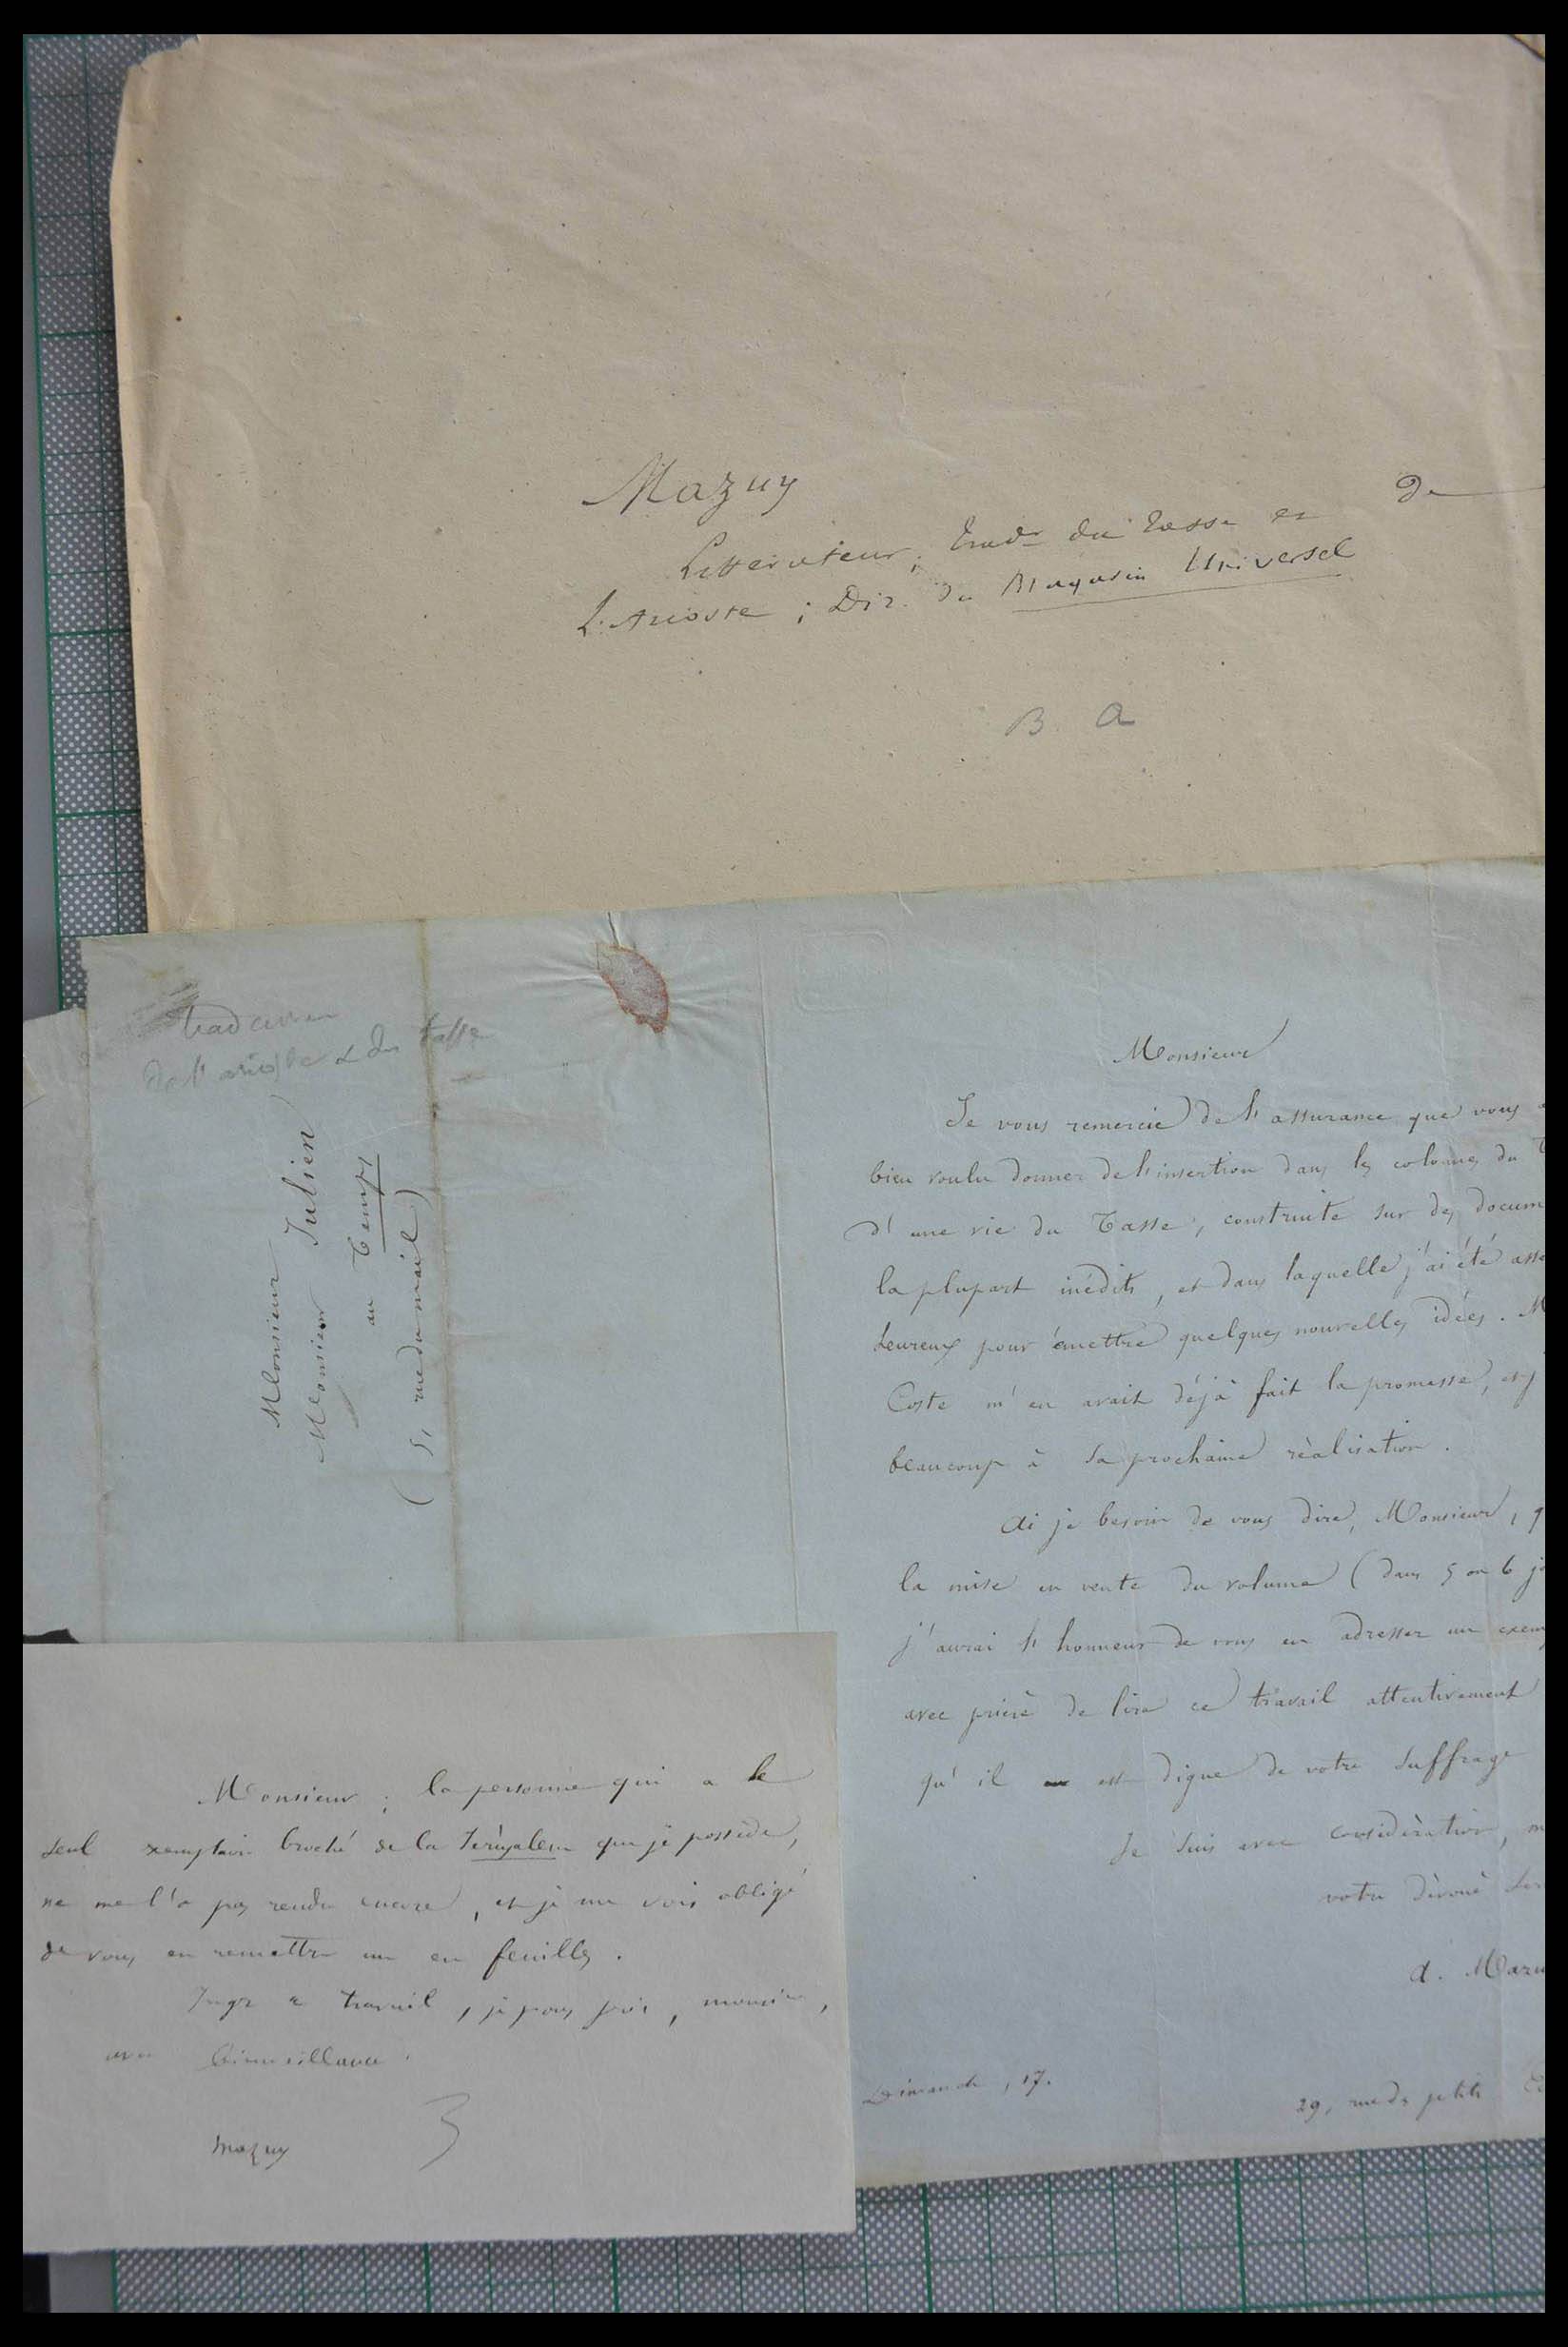 Mazuy
De
Littérateur ; Tradr du Tasse et
L'Arioste ; Dir. du Magasin Universel
B. A
traducteur
de l'arioste & du tasse
Monsieur
Monsieur Julien
au Temps
(5, rue du mail)
Monsieur
Je vous remercie de l'assurance que vous a
bien voulu donner de l'insertion dans les colonnes du T
d'une vie du Tasse, construite sur des docum
la plupart inédits, et dans laquelle j'ai été asse
heureux pour émettre quelques nouvelles idées. M
Coste m'en avait déjà fait la promesse, et j
beaucoup à sa prochaine réalisation.
Ai je besoin de vous dire, Monsieur, q
la mise en vente du volume (dans 5 ou 6 jo
j'aurai l'honneur de vous en adresser un exem
avec prière de lire ce travail attentivement
qu'il est digne de votre suffrage
Je suis avec considération, m
votre dévoué ser
A. Mazu
Dimanche, 17.
29, rue des petits
Monsieur ; la personne qui a le
seul exemplaire broché de la Jérusalem que je possède,
ne me l'a pas rendu encore, et je me vois obligé
de vous en remettre un en feuilles.
Jugez ce travail, je vous prie, monsieur,
avec bienveillance.
Mazuy
3